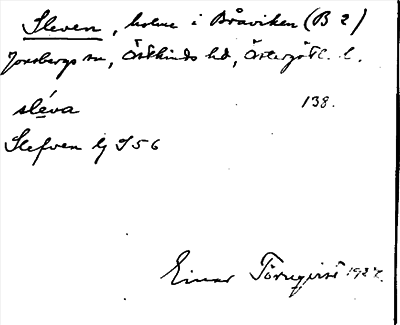 Sleven, holme i Bråviken (B 2)
Jonsbergs sn, Östkinds hd, Östergötl. l.
sléva 138.
Slefven Gj S 56
Einar Törnqvist 1927.